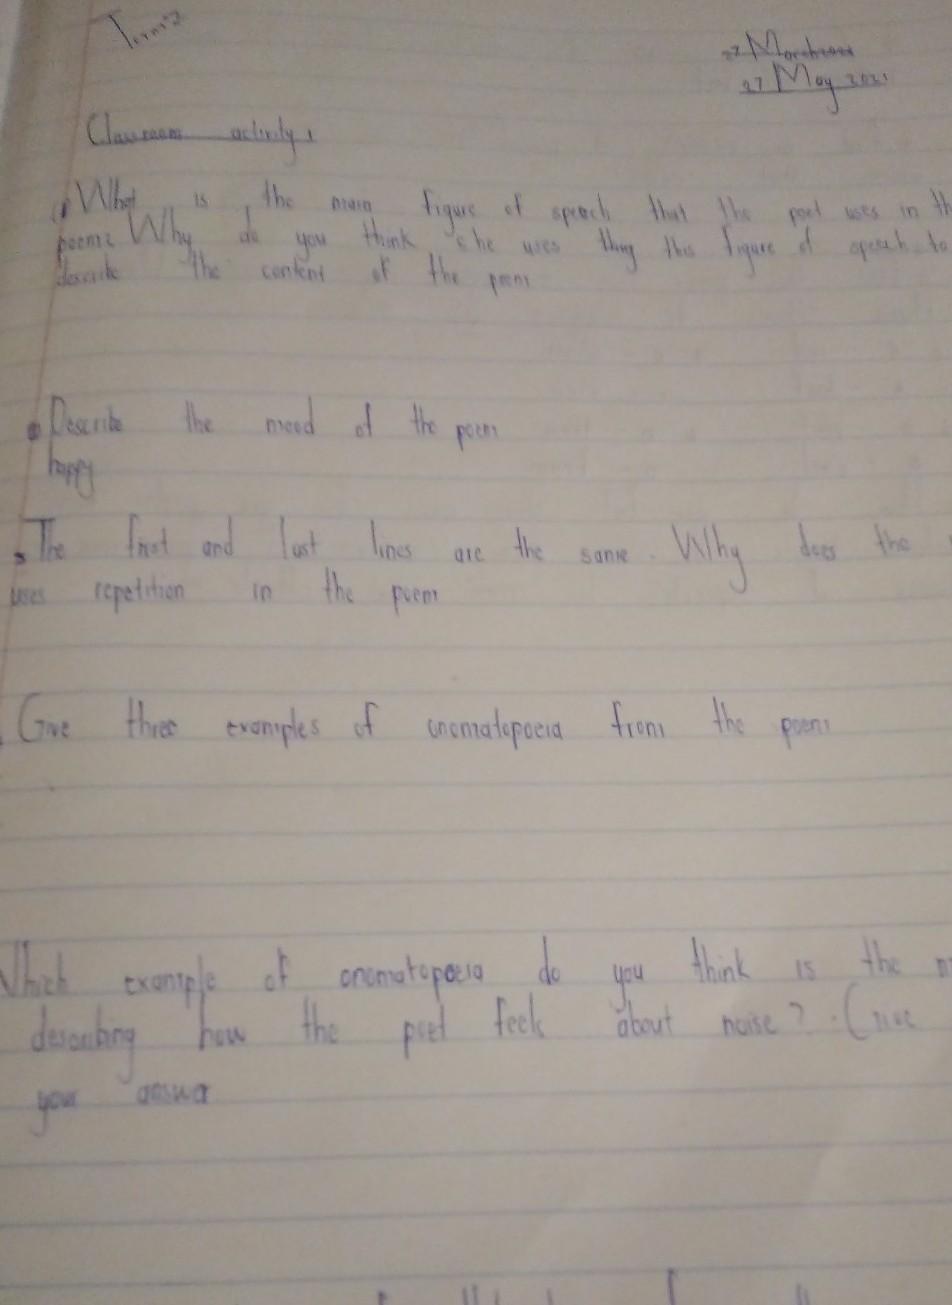 Term 2
27 March
27 May 2021
Classroom activity 1
1) What is the main figure of speech that the poet uses in th
poem? Why do you think she uses thng this figure of speech to
describe the content of the poem
Describe the mood of the poem
happy
3 The first and last lines are the same. Why does the
uses repetition in the poem
Give three examples of onomatopoeia from the poem
Which example of onomatopoeia do you think is the
describing how the poet feels about noise? Give
your answer